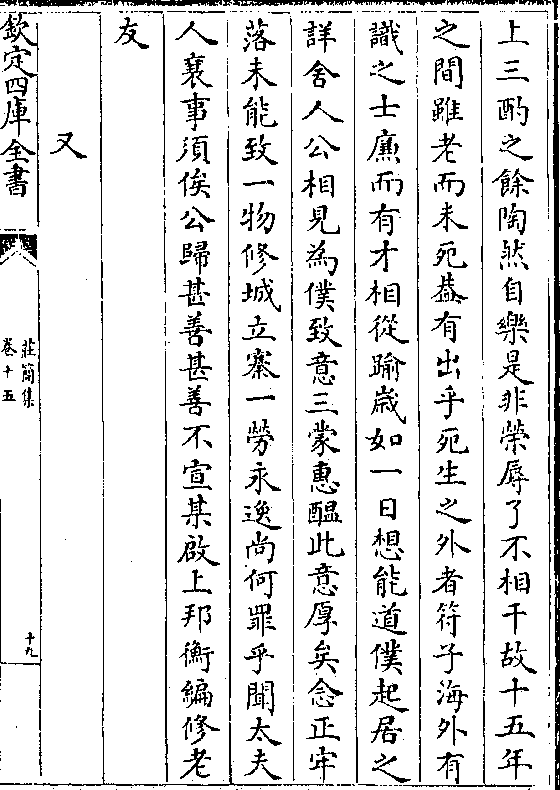 上三酌之餘陶然自樂是非榮辱了不相干故十五年
之間雖老而未死葢有出乎死生之外者符子海外有
識之士廉而有才相從踰歳如一日想能道僕起居之
詳舍人公相見為僕致意三蒙惠醖此意厚矣念正牢
落未能致一物修城立寨一勞永逸尚何罪乎聞太夫
人襄事須俟公歸甚善甚善不宣某啟上邦衡編修老
友
又
欽定四庫全書
莊簡集
卷十五
十九